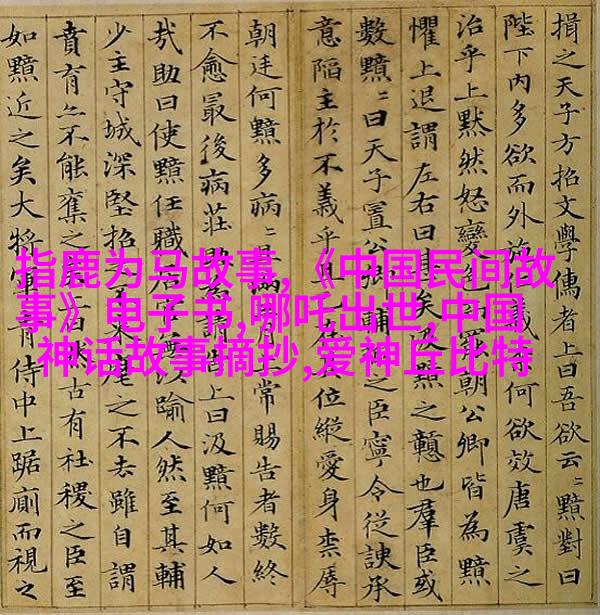 揖之天子方招文學儒者上曰吾欲云〻黯對曰
陛下內多欲而外施仁義何欲效唐虞之
治乎上黙然怒變色而罷朝公卿皆為黯
懼上退謂左右曰甚矣汲黯之戇也羣臣或
數黯〻曰天子置公卿輔之臣寧令從諛承
意陷主於不義乎且在位縱愛身柰辱
朝廷何黯多病〻且滿月上常賜告者數終
不愈最後病莊助為請告上曰汲黯何如人
㢤助曰使黯任職居官以踰人然至其輔
少主守城深堅招之不來麾之不去雖自謂
賁育亦不能奪之矣上曰然古有社稷之臣至
如黯近之矣大將軍青侍中上踞廁而視之
指鹿为马故事,《中国民间故
事》电子书,哪吒出世,中国
神话故事摘抄,爱神丘比特